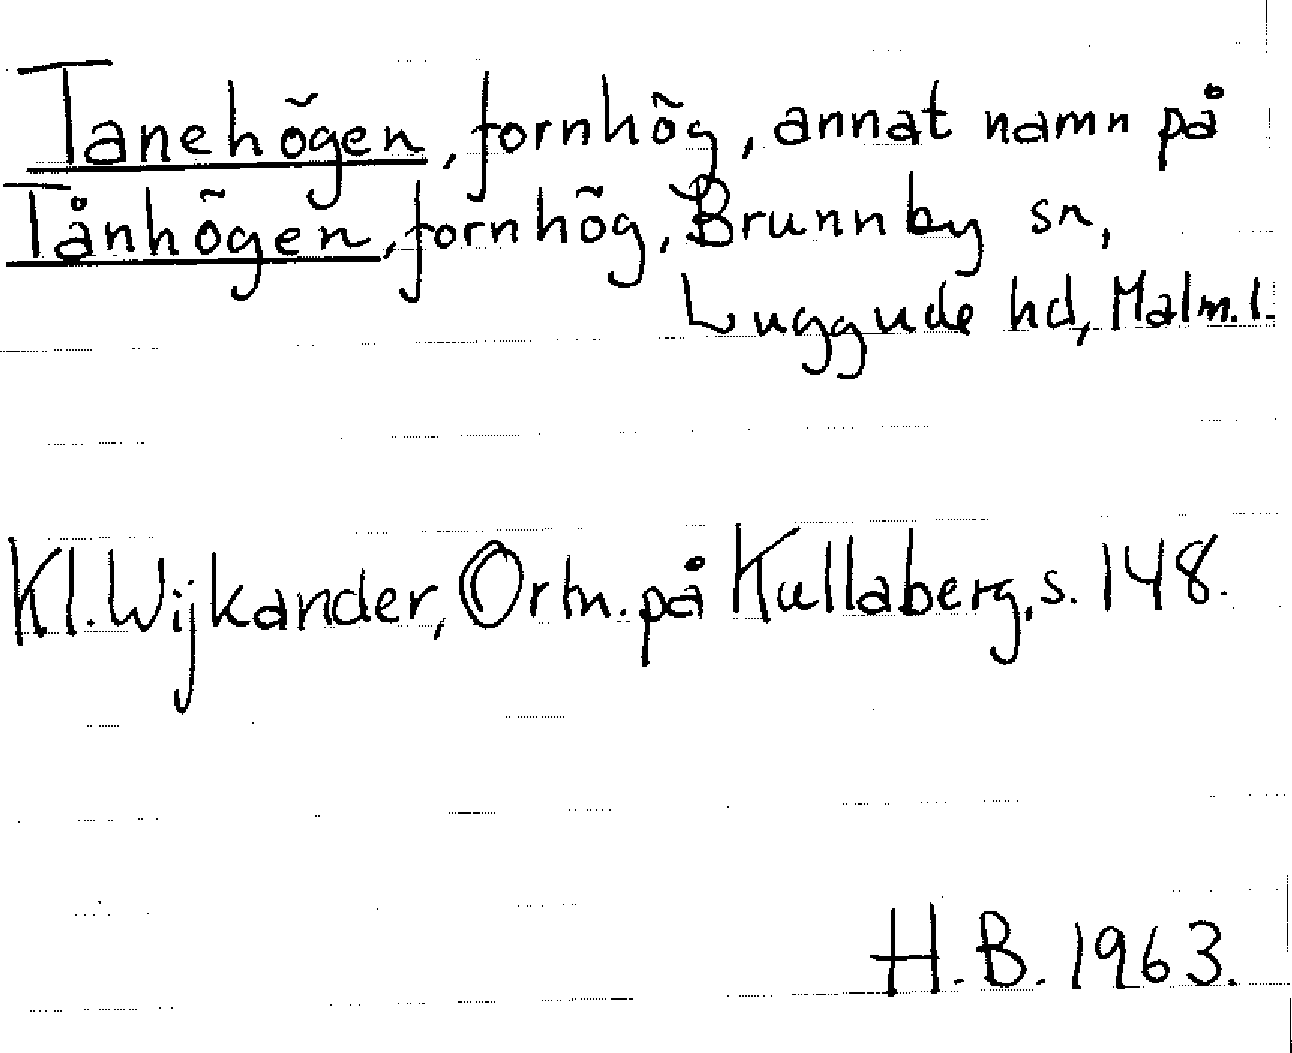 Tanehögen, fornhög, annat namn på
Tånhögen, fornhög, Brunnby sn,
Luggude hd, Malm. l.
Kl. Wijkander, Ortn. på Kullaberg, s. 148.
H. B. 1963.